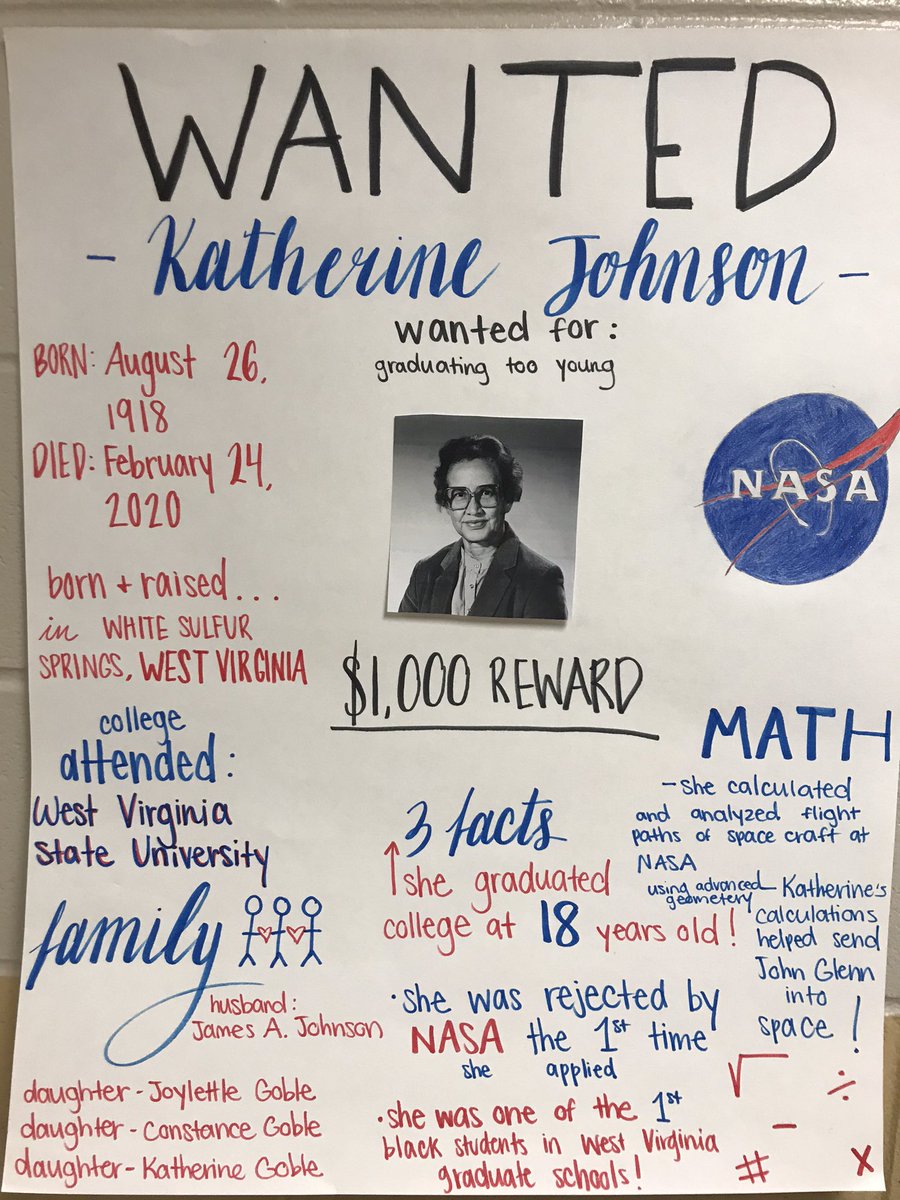 WANTED
- Katherine Johnson -
wanted for:
graduating too young
BORN: August 26,
1918
DIED: February 24,
2020
born + raised...
in WHITE SULFUR
SPRINGS, WEST VIRGINIA
college
attended:
West Virginia
State University
family
husband:
James A. Johnson
daughter - Joylettle Goble
daughter - Constance Goble
daughter - Katherine Goble
NASA
$1,000 REWARD
3 facts
she graduated
college at 18 years old!
• she was rejected by
NASA the 1st time
she applied
• she was one of the 1st
black students in West Virginia
graduate schools!
MATH
- she calculated
and analyzed flight
paths of space craft at
NASA
using advanced
geometery
- Katherine's
calculations
helped send
John Glenn
into
space!
√ ÷
-
# x